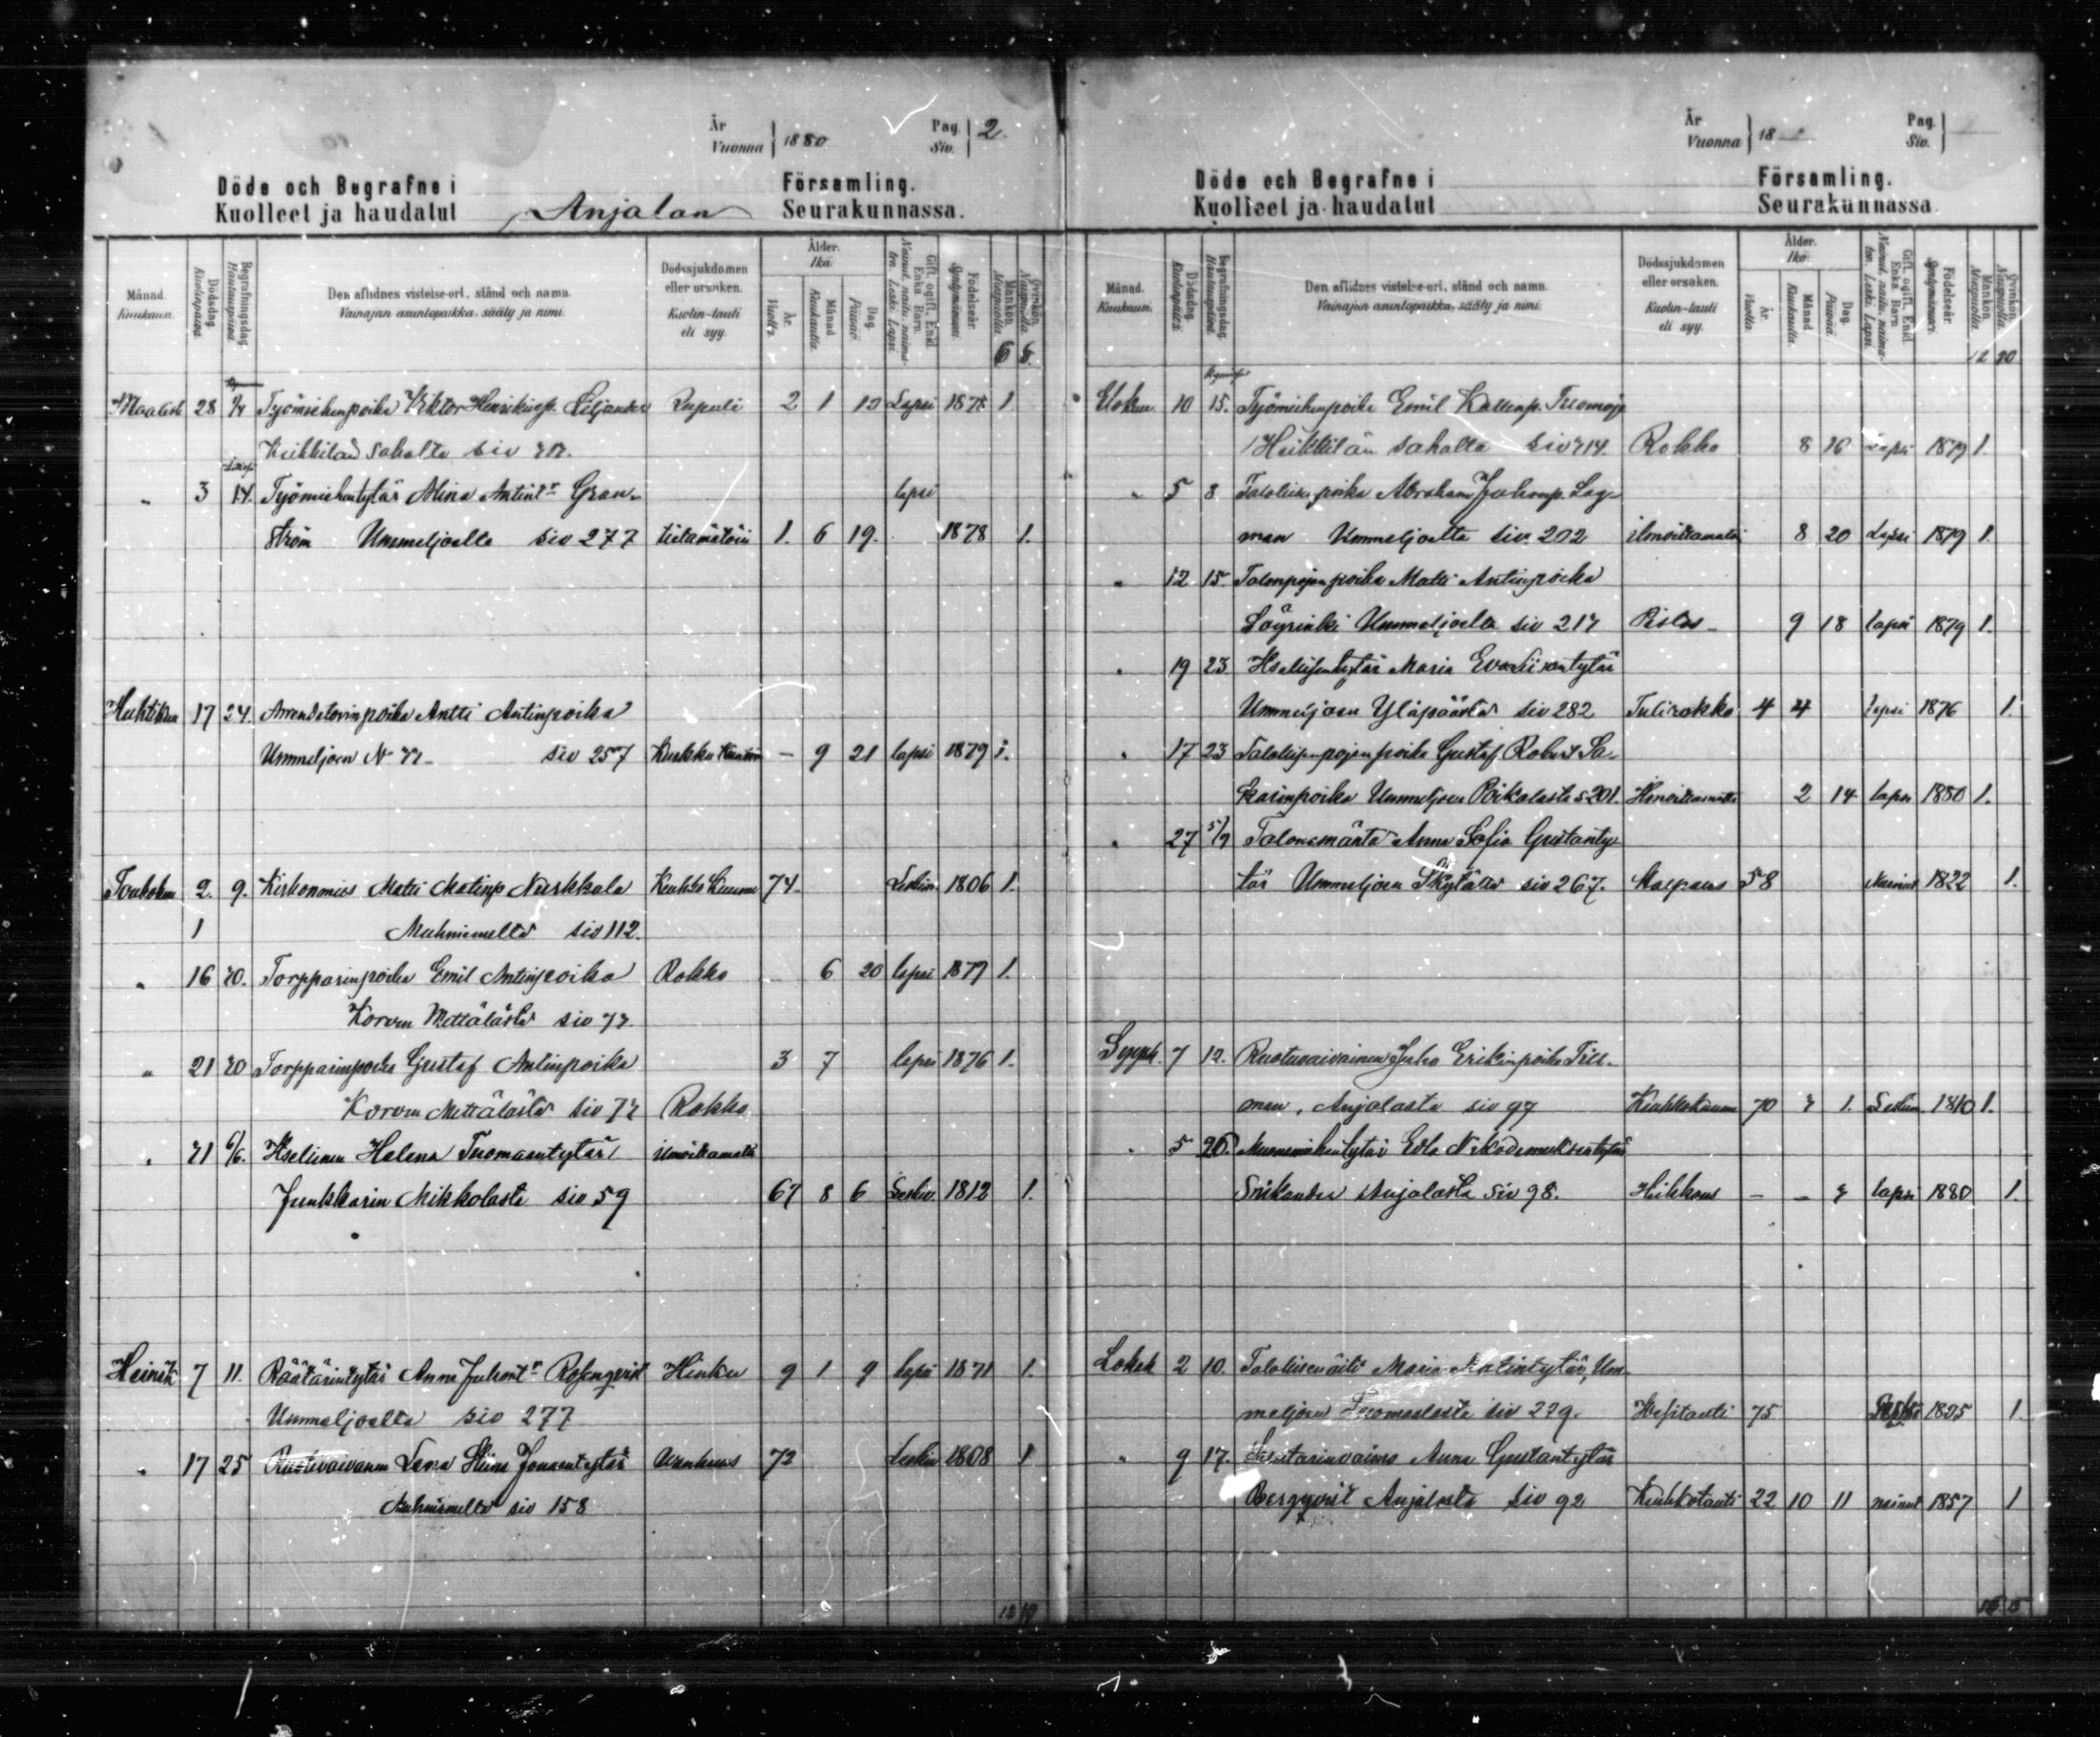 År Vuonna 1880 Pag. Siv. 2.
Döde och Begrafne i Församling.
Kuolleet ja haudatut Anjalan Seurakunnassa.
Månad. Kuukausi. Dödsdag. Kuolinpäivä. Begrafningsdag. Hautauspäivä. Den aflidnes vistelse-ort, stånd och namn. Vainajan asuntopaikka, sääty ja nimi. Dödssjukdomen eller orsaken. Kuolin-tauti eli syy. Ålder. Ikä. År. Vuotta. Månad Kuukautta. Dag. Päivää. Gift, ogift, Enkl. Enka Barn. Nainut, naitu, naimaton. Leski. Lapsi. Födelseår. Syntymävuosi. Mankön. Miespuolia. Qvinkön. Naispuolia.
6 6.
Maalisk 28 Työmiehenpoika Viktor Henrikinp. Liljander 2 1 Lapsi 1878 1
Heikkilän sahalta siv
" 3 14. Työmiehentytär Alina Antint:r Gran- lapsi
ström Ummeljoelta siv 277 tietämätöin 1. 6 19. 1878 1.
Huhtikuu 17 24. Arrendatorinpoika Antti Antinpoika
Ummeljoen N siv 257 — 9 21 lapsi 1879 1.
Toukokuu 2. 9. Matti Matinp Nurkkala Keuhko Kuume 74. Leskim 1806 1.
1 Muhniemeltä siv 112.
" 16 20. Torpparinpoika Emil Antinpoika Rokko 6 20 lapsi 1879 1.
Korven Mettälästä siv 72.
" 21 20 Torpparinpoika Gustaf Antinpoika 3 7 lapsi 1876 1.
Korven Mettälästä siv 72 Rokko
" 21 6/6. Itsellinen Helena Tuomaantytär ilmoittamatta
Junkkarin Mikkolasta siv 59 67 8 6 Leskiv. 1812 1.
Heinäk 7 11. Räätärintytär Anna Juhont:r Rosenqvist Hinku 9 1 9 lapsi 1871 1.
Ummeljoelta siv 277
" 17 25 Ruotuvaivanen Lena Stiina Joonaantytär Vanhuus 72 Leskiv 1808 1
Muhniemeltä siv 158
12 19
År Vuonna 18 Pag. Siv.
Döde och Begrafne i Församling.
Kuolleet ja haudatut Seurakunnassa.
Månad. Kuukausi. Dödsdag. Kuolinpäivä. Begrafningsdag. Hautauspäivä. Den aflidnes vistelse-ort, stånd och namn. Vainajan asuntopaikka, sääty ja nimi. Dödssjukdomen eller orsaken. Kuolin-tauti eli syy. Ålder. Ikä. År. Vuotta. Månad Kuukautta. Dag. Päivää. Gift, ogift, Enkl. Enka Barn Nainut, naitu, naimaton. Leski. Lapsi. Födelseår. Syntymävuosi. Mankön. Miespuolia. Qvinkön. Naispuolia.
12 20
Elokuu 10 15. Työmiehenpoika Emil Kallenp. Tuomoja
Heikkilän sahalta siv 214. Rokko 8 26 Lapsi 1879 1.
" 5 8 Talollisenpoika Abraham Juhonp. Lag-
man Ummeljoelta siv. 202 ilmoittamata 8 20 Lapsi 1879 1.
" 12 15. Talonpojanpoika Matti Antinpoika
Löyrinki Ummeljoelta siv 217 Pistos 9 18 lapsi 1879 1.
" 19 23 Itsellisentytär Maria
Ummeljoen Yläpäästä siv 282 Tulirokko 4 4 lapsi 1876 1.
" 17 23 Talollisenpojanpoika Gustaf Robert Sa-
karinpoika Ummeljoen Poikolasta s. 201. Ilmoittamatta 2 14 lapsi 1880 1.
" 27 5/9 Talonemäntä Anna Sofia Gustanty-
tär Ummeljoen Skytältä siv 267. 58 Nainut 1822 1.
Syysk. 7 12. Ruotuvaivainen Juho Erikinpoika
man, Anjalasta siv 97 Keuhkokuume 70 2 1. Leskim. 1810 1.
" 5 20. Edla Nikodemuksentytär
Anjalasta siv 98. — — 2 lapsi 1880 1.
Lokak 2 10. Talollisenäiti Maria Matintytär, Um-
meljoen Tuomaalasta siv 229. Vesitauti 75 Leski 1805 1.
" 9 17. Anna Gustantytär
Bergqvist Anjalasta siv 92 Keuhkotauti 22 10 11 nainut 1857 1
16 15